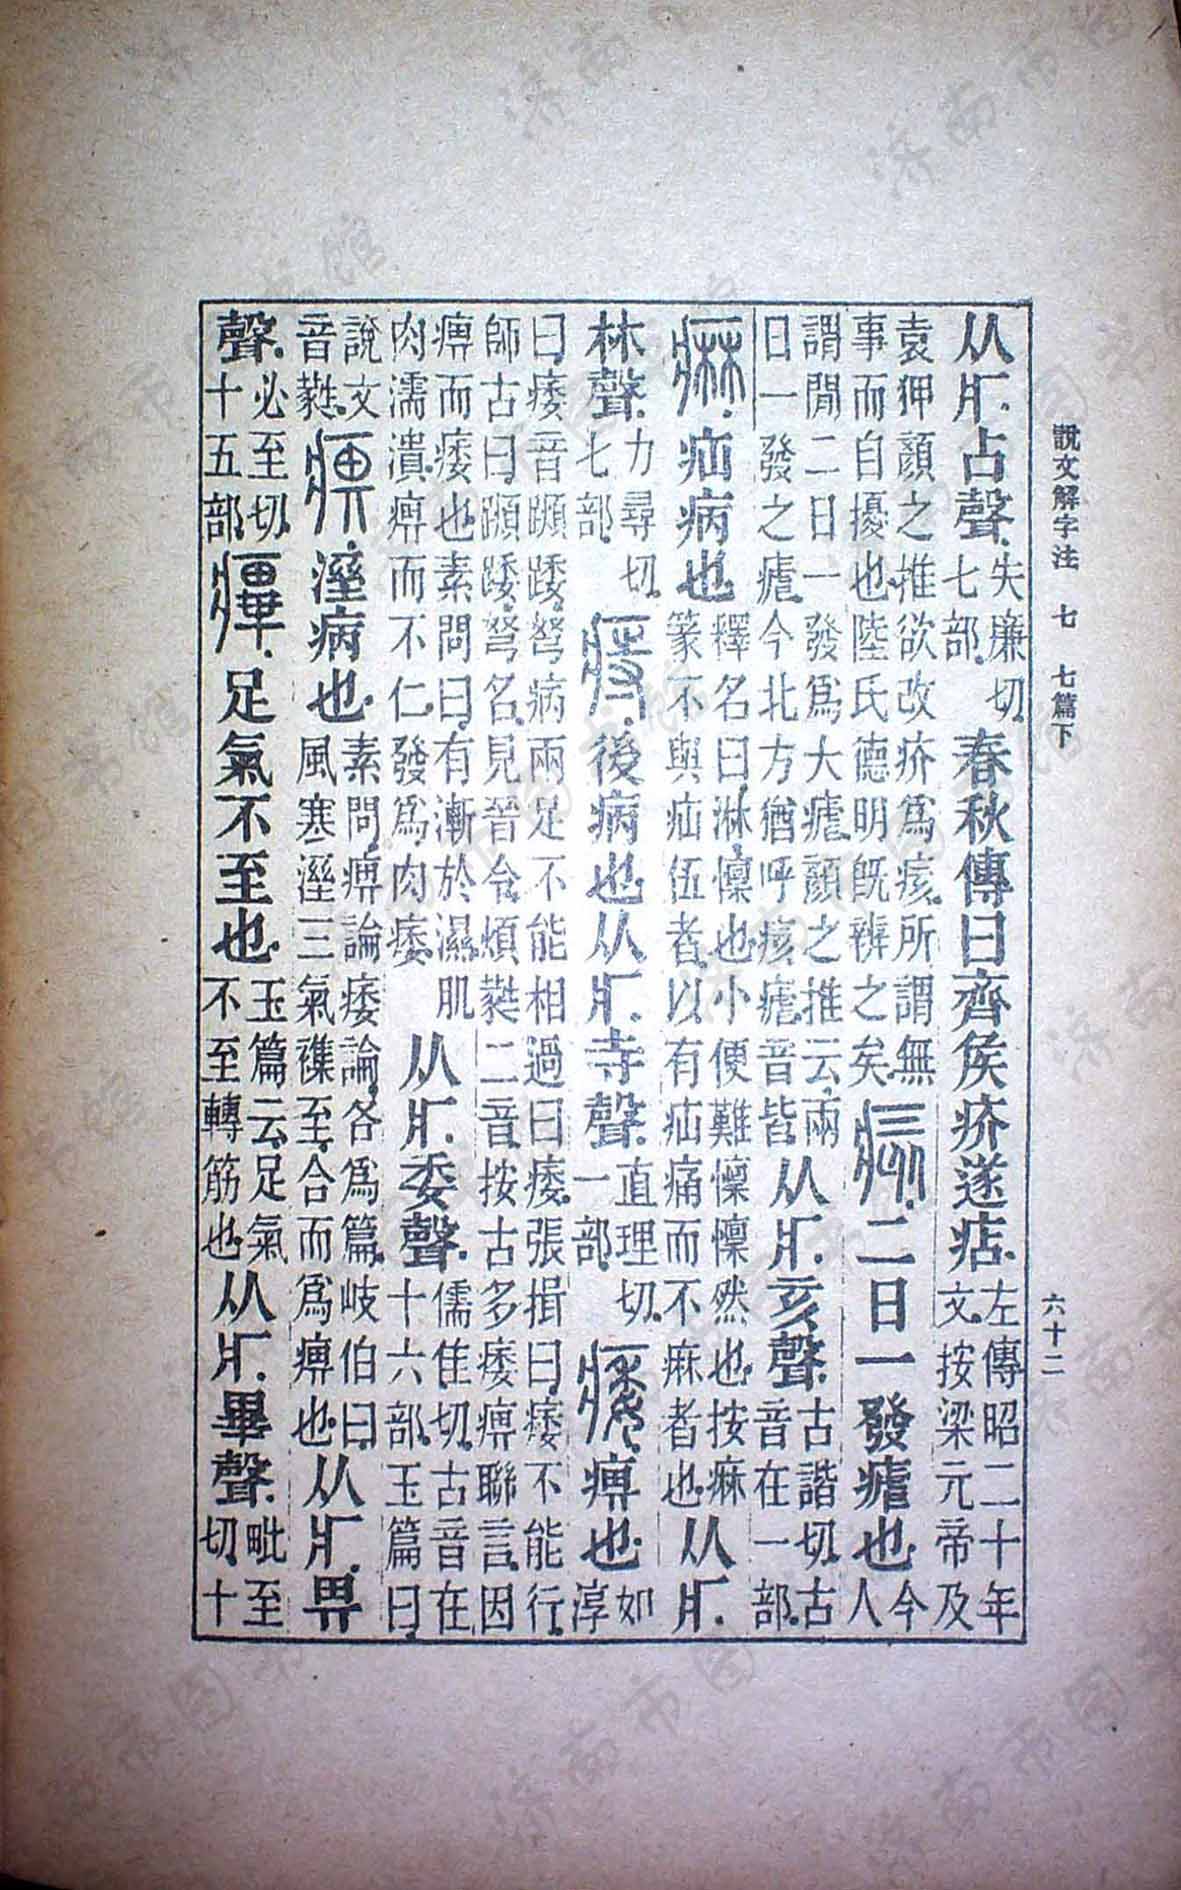 說文解字注 七 七篇下 六十二
从疒。占聲。失廉切。七部。春秋傳曰齊矦疥遂痁。左傳昭二十年文。按梁元帝及
袁狎顏之推欲改疥爲痎。所謂無事而自擾也。陸氏德明旣辨之矣。痎。二日一發瘧也。今人
謂閒二日一發爲大瘧。顏之推云。兩日一發之瘧。今北方猶呼痎瘧。音皆。从疒。亥聲。古諧切。古音在一部。
痳。疝病也。釋名曰。淋。懍也。小便難懍懍然也。按痳篆不與疝伍者。以有疝痛而不痳者也。从疒。
林聲。力尋切。七部。痔。後病也。从疒。寺聲。直理切。一部。痿。痹也。如淳
曰。痿音蹞踒弩。病兩足不能相過曰痿。張揖曰。痿不能行。師古曰。蹞踒。弩名。見晉令。煩蕤二音。按古多痿痹聯言。因
痹而痿也。素問曰。有漸於濕。肌肉濡潰。痹而不仁。發爲肉痿。从疒。委聲。儒隹切。古音在十六部。玉篇曰。
說文音蕤。痹。溼病也。素問痹論。痿論。各爲篇。岐伯曰。風寒溼三氣襍至。合而爲痹也。从疒。畀
聲。必至切。十五部。㾰。足氣不至也。玉篇云。足氣不至轉筋也。从疒。畢聲。毗至切。十